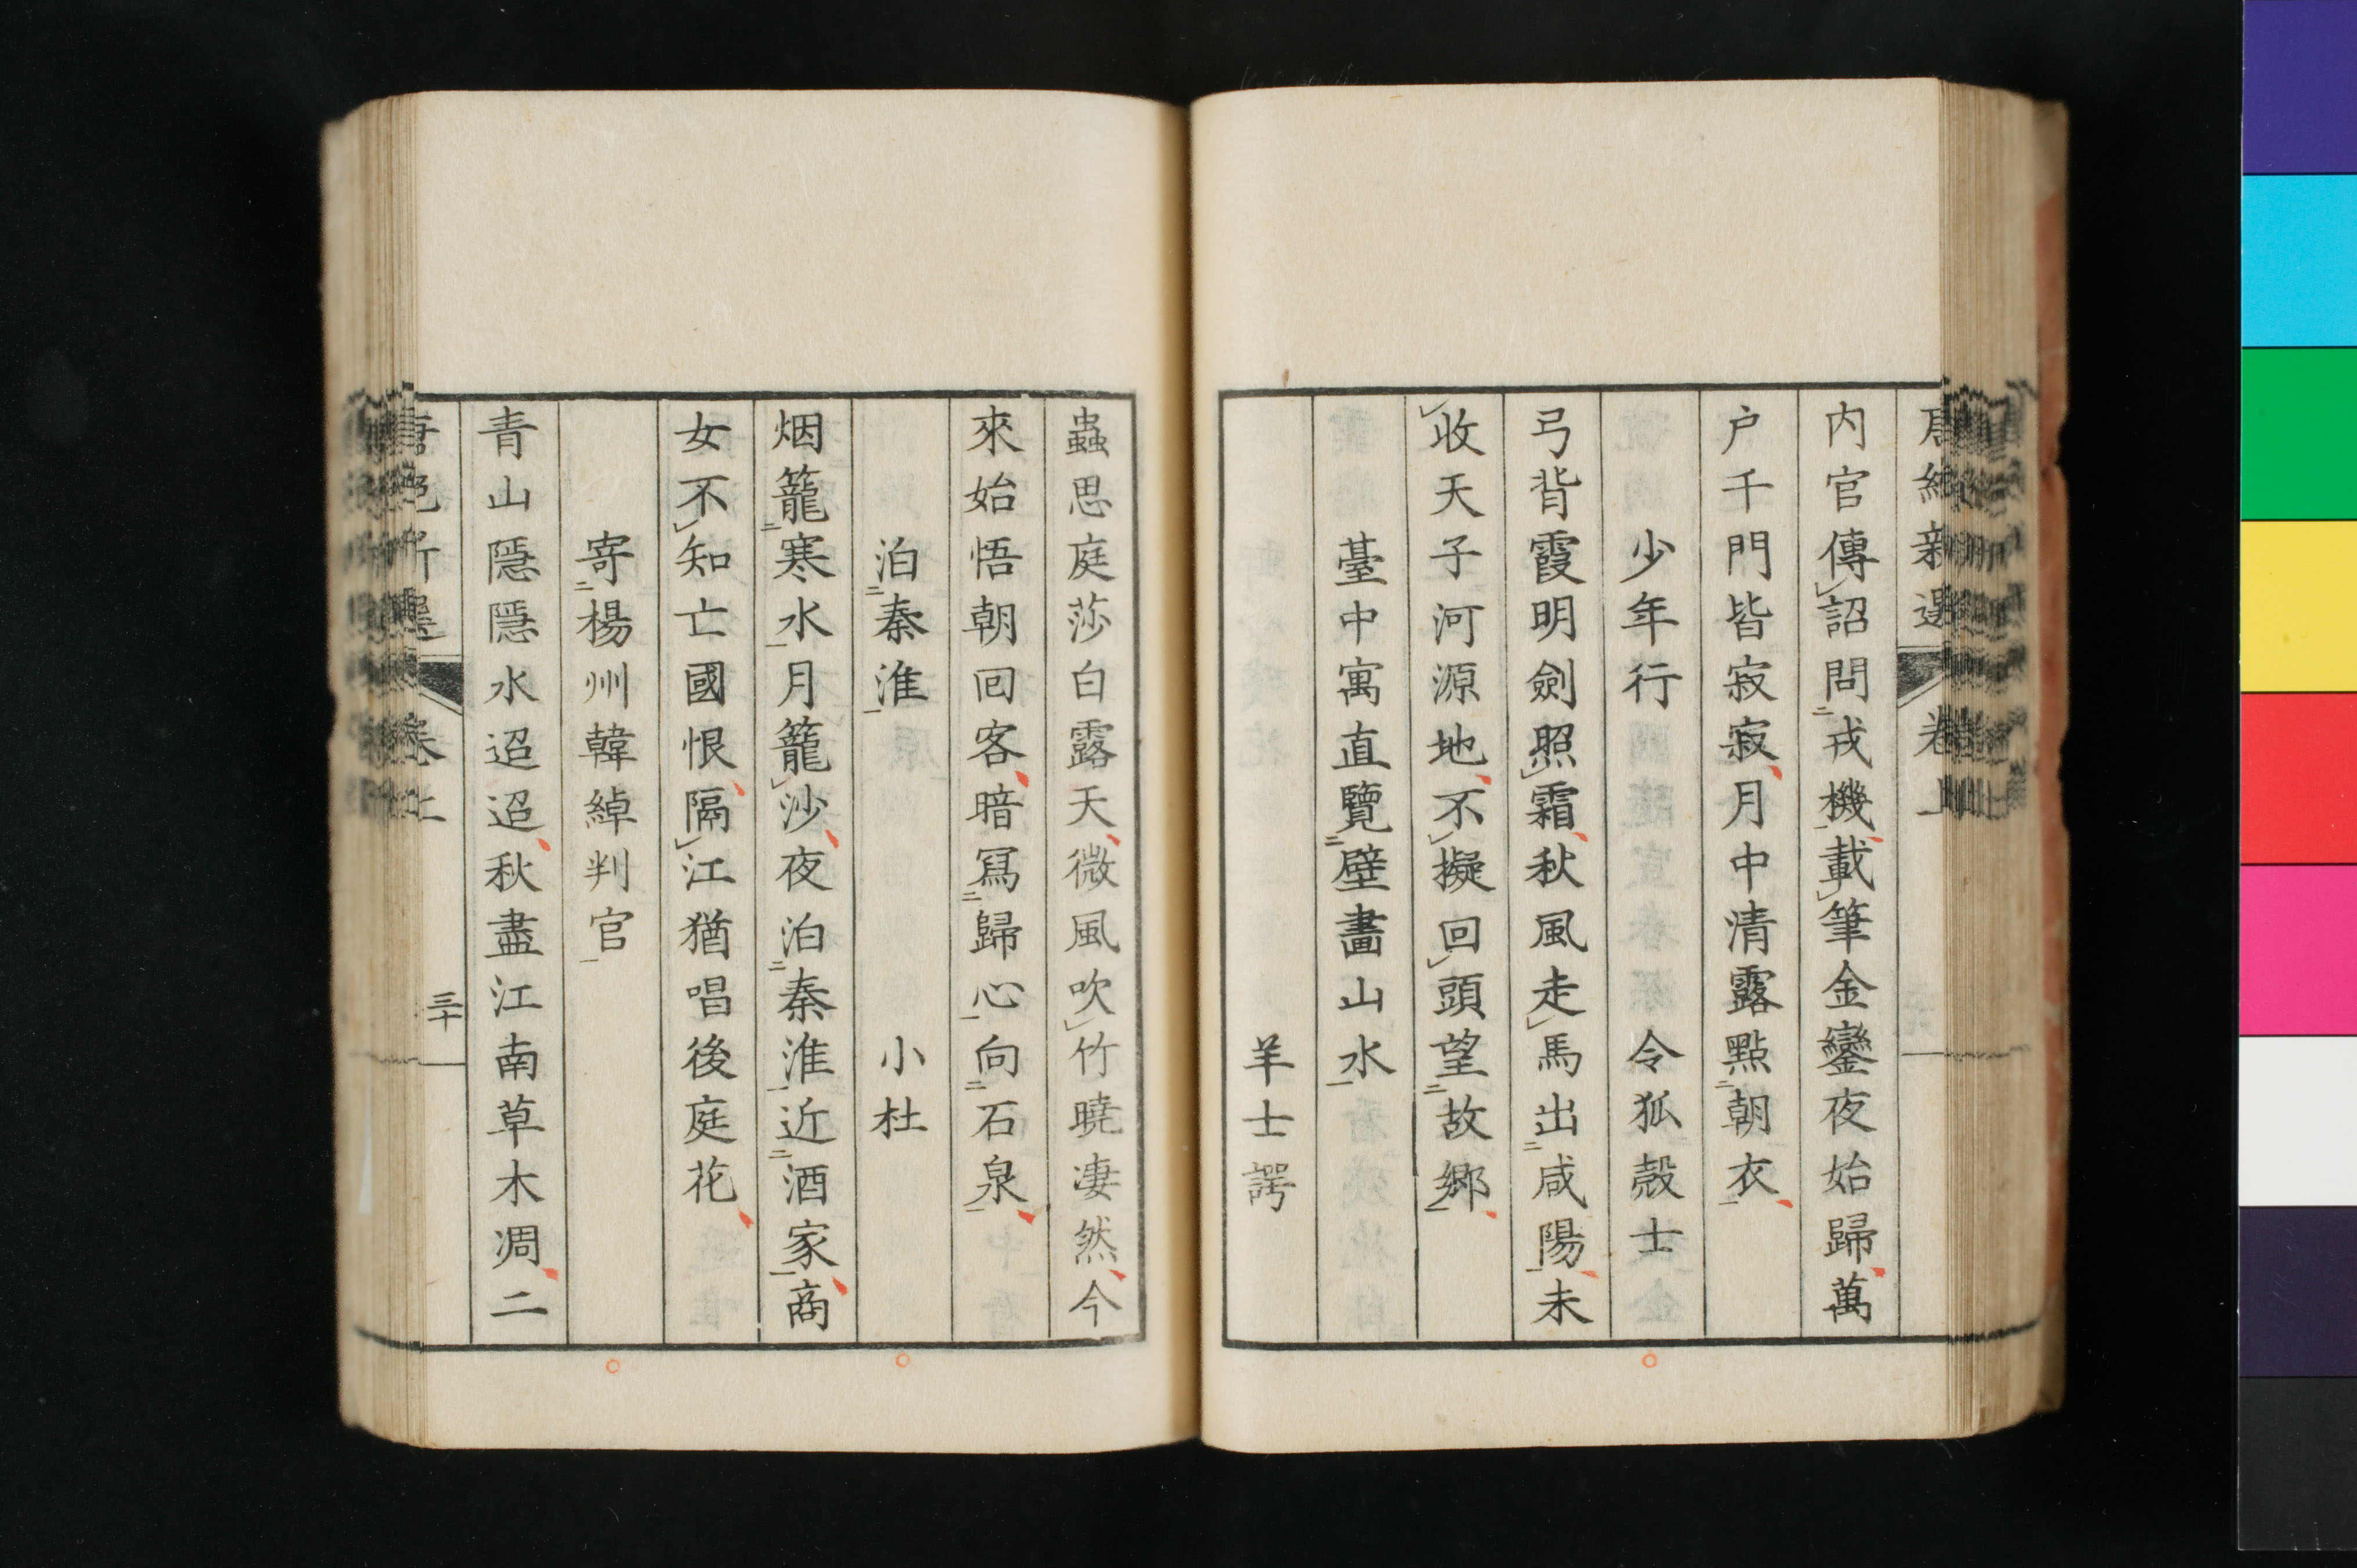 唐絶新選 卷上
内官傳詔問戎機載筆金鑾夜始歸萬
户千門皆寂寂月中清露點朝衣
少年行 令狐殼士
弓背霞明劍照霜秋風走馬出咸陽未
收天子河源地不擬回頭望故郷
臺中寓直覽壁畫山水
羊士諤
蟲思庭莎白露天微風吹竹曉凄然今
來始悟朝回客暗冩歸心向石泉
泊秦淮 小杜
烟籠寒水月籠沙夜泊秦淮近酒家商
女不知亡國恨隔江猶唱後庭花
寄楊州韓綽判官
青山隱隱水迢迢秋盡江南草木凋二
唐絶新選 卷上 三十